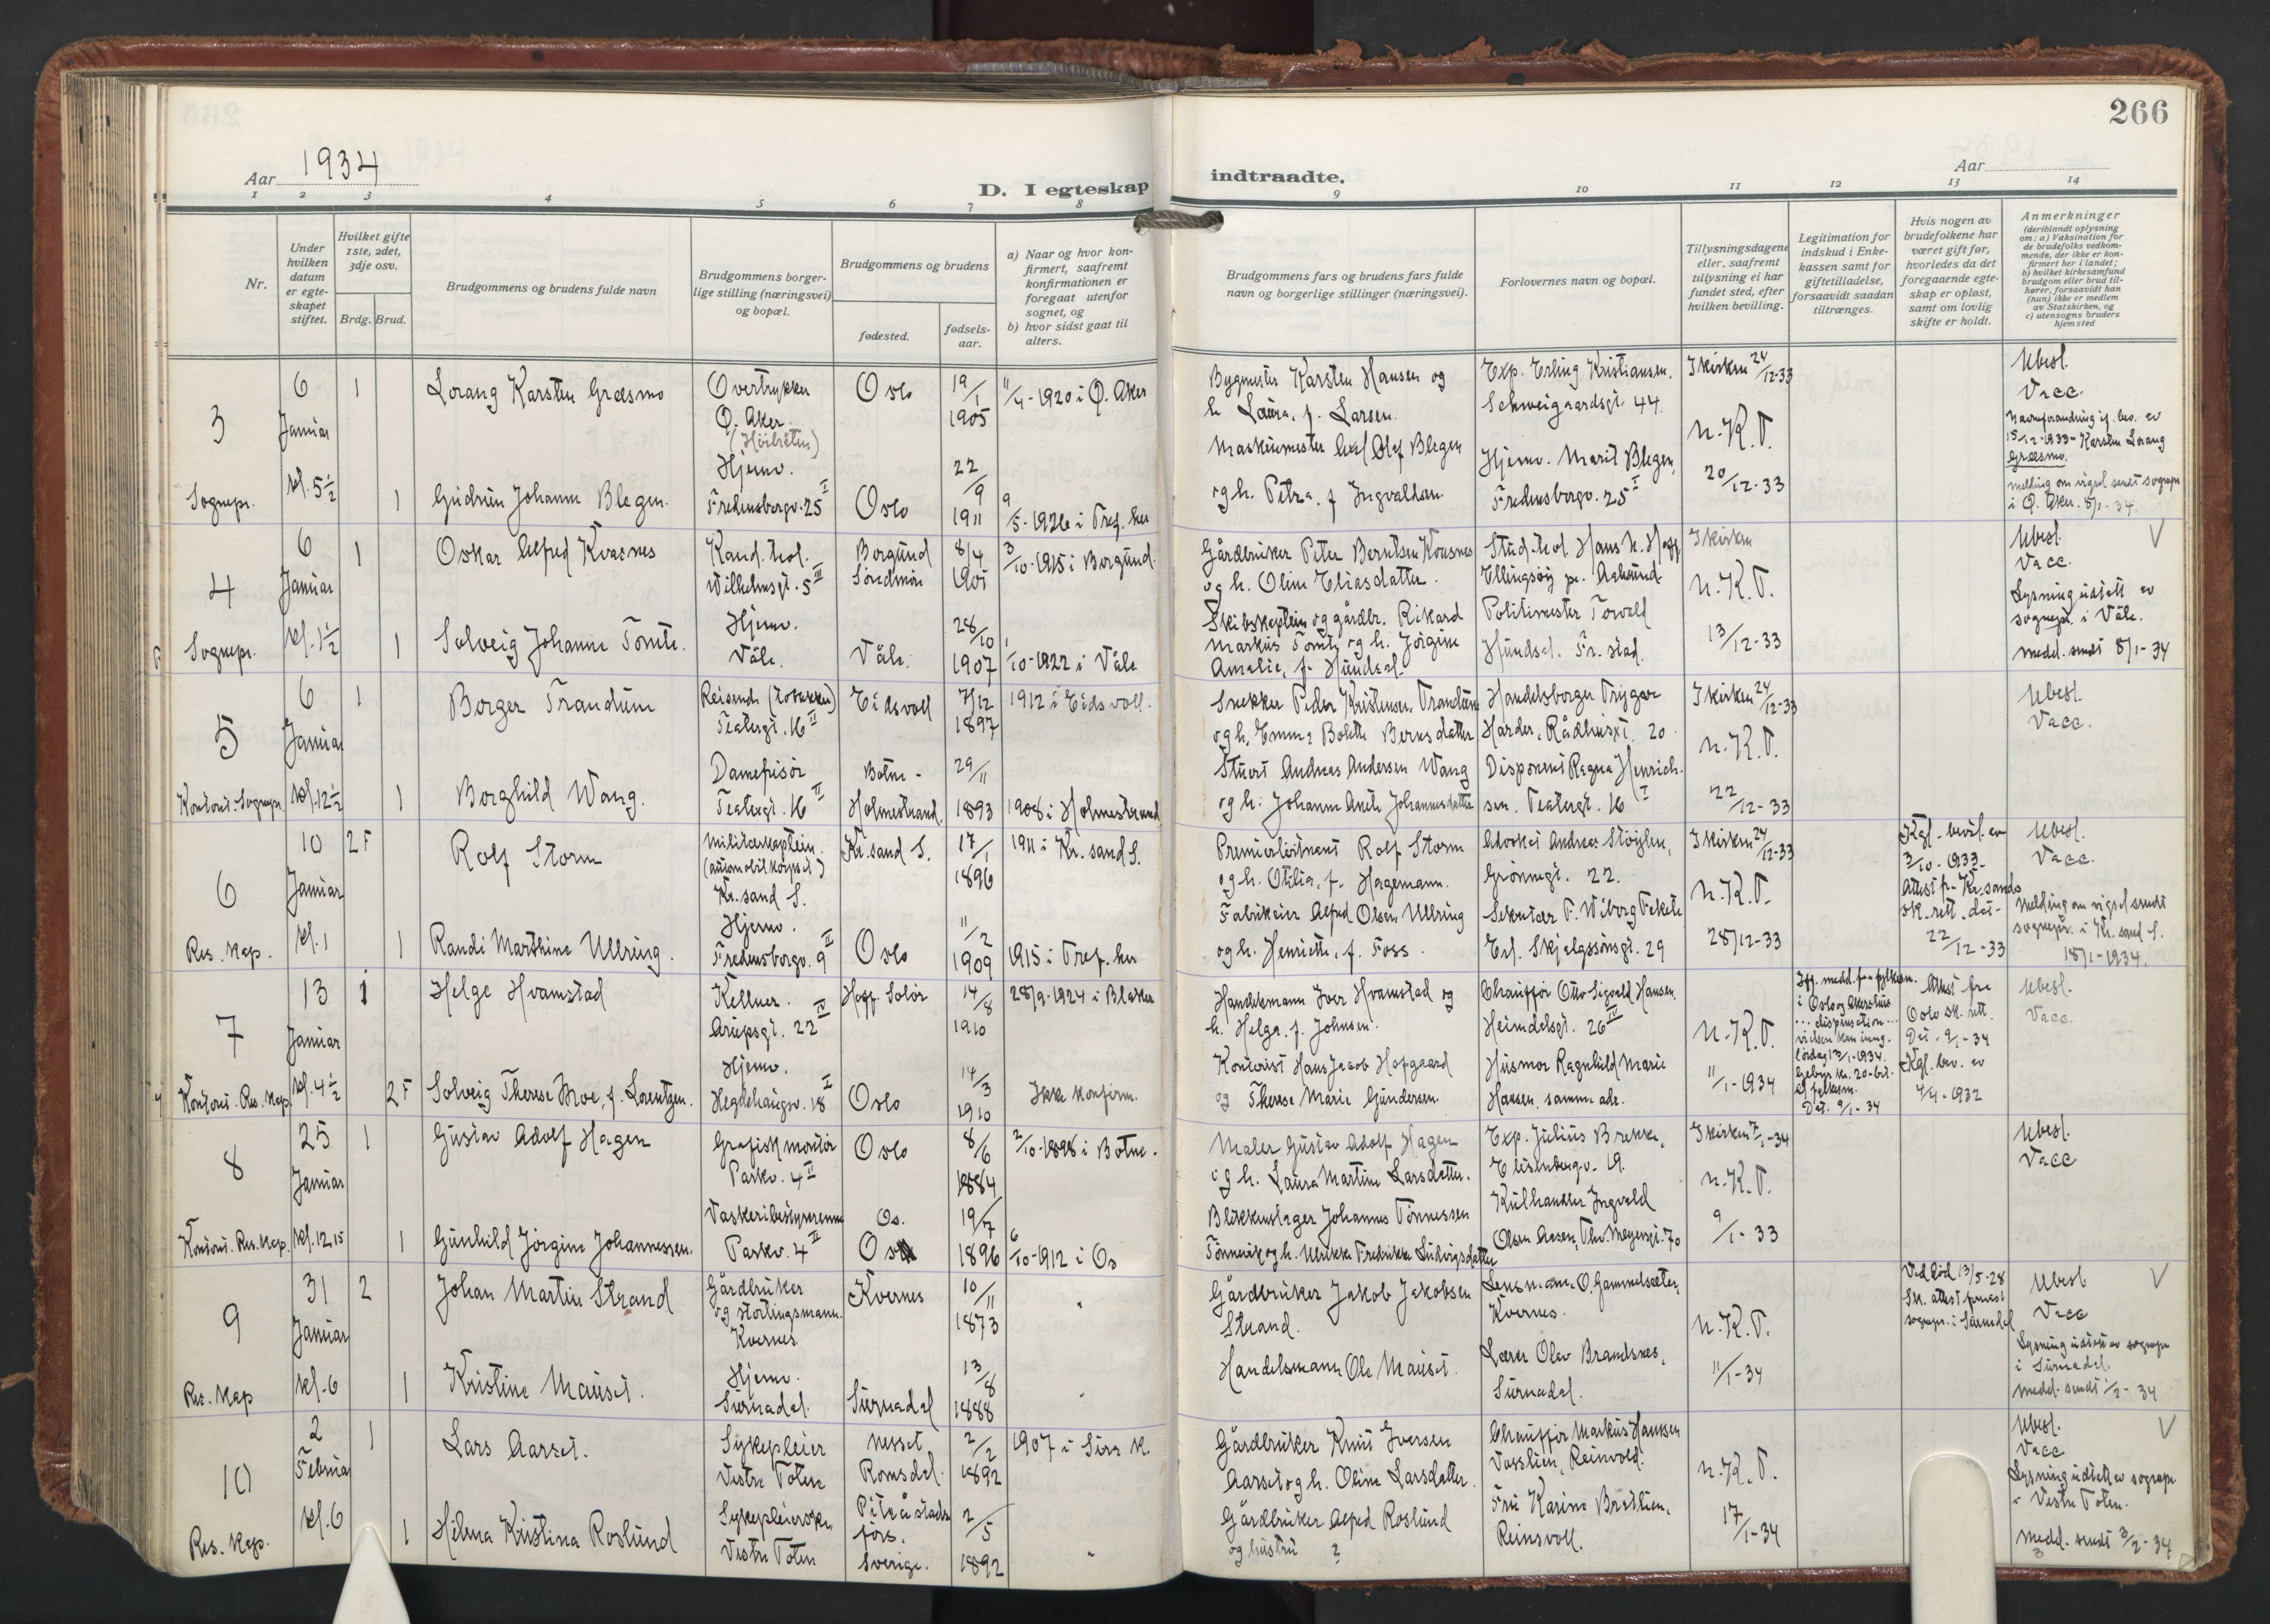 266
Aar 1934
D. I egteskap indtraadte.
Aar
1 2 3 4 5 6 7 8 9 10 11 12 13 14
Nr.
Under hvilken datum er egteskapet stiftet.
Hvilket gifte 1ste, 2det, 3dje osv.
Brdg. Brud.
Brudgommens og brudens fulde navn
Brudgommens borgerlige stilling (næringsvei) og bopæl.
Brudgommens og brudens
fødested.
fødsels-aar.
a) Naar og hvor konfirmert, saafremt konfirmationen er foregaat utenfor sognet, og
b) hvor sidst gaat til alters.
Brudgommens fars og brudens fars fulde navn og borgerlige stillinger (næringsvei).
Forlovernes navn og bopæl.
Tillysningsdagene eller, saafremt tillysning ei har fundet sted, efter hvilken bevilling.
Legitimation for indskud i Enkekassen samt for giftetilladelse, forsaavidt saadan tiltrænges.
Hvis nogen av brudefolkene har været gift før, hvorledes da det foregaaende egteskap er opløst, samt om lovlig skifte er holdt.
Anmerkninger (deriblandt oplysning om: a) Vaksination for de brudefolks vedkommende, der ikke er konfirmert her i landet; b) hvilket kirkesamfund brudgom eller brud tilhører, forsaavidt han (hun) ikke er medlem av Statskirken, og c) utensogns bruders hjemsted
3 6 Januar kl. 5½ Sognepr.
1 Lorang Karsten Græsmo Overtrykker Ø. Aker. (Høibråten) Oslo 19/1 1905 11/4-1920 i Ø. Aker
Bygmester Karsten Hansen og h. Laura, f. Larsen. Exp. Erling Kristiansen. Schweigaardsgt. 44. I kirken 24/12-33 N.K.T. Ubesl. Vacc.
15/12-1933 Karsten Lorang Græsmo.
1 Gudrun Johanne Blegen. Hjemv. Fredensborgv. 25 I Oslo 22/9 1911 9/5-1926 i Tref. her
Maskinmester Olaf Blegen og h. Petra, f. Ingvaldsen. Hjemv. Marit Blegen, Fredensborgv. 25 I 20/12-33 melding om vigsel sendt sognepr. i Ø. Aker. 8/1-34.
4 6 Januar kl. 1½ Sognepr.
1 Oskar Alfred Kvasnes Kand. teol. Wilhelmsgt. 5 III Borgund Søndmør 8/4 1901 3/10-1915 i Borgund.
Gårdbruker Peter Berntsen Kvasnes og h. Oline Eliasdatter. Stud. teol. Hans K. Ellingsøy pr. Aalesund. I kirken N.K.T. Ubesl. Vacc. Lysning utstedt av sognepr. i Våle.
1 Solveig Johanne Tømte. Hjemv. Våle. Våle. 28/10 1907 1/10-1922 i Våle
Skibskaptein og gårdbr. Rikard Markus Tømte og h. Jørgine Amalie, f. Hundsal. Politimester Torvald Hundsal. Fr.stad. 13/12-33 medd. sendt 8/1-34
5 6 Januar kl. 12½ Kontoret. Sognepr.
1 Borger Trandum Reisende Teatergt. 16 II Eidsvoll 7/12 1897 1912 i Eidsvoll.
Snekker Peder Kristensen Trandum og h. Emma Bolette Berntsdatter Handelsborger Trygve Harder, Rådhusgt. 20. I kirken 24/12-33 N.K.T. Ubesl. Vacc.
1 Borghild Wang. Damefrisør Teatergt. 16 II Botne - Holmestrand. 29/11 1893 1908 i Holmestrand
Stuert Andreas Andersen Wang og h. Johanne Anete Johannesdatter Disponent Ragna Henrichsen. Teatergt. 16 I 22/12-33
6 10 Januar kl. 1 Res. kap.
2 F Rolf Storm Militærkaptein. (automobilkorpset) Kr.sand S. Kr.sand S. 17/1 1896 1911 i Kr.sand S.
Premierløitnant Rolf Storm og h. Otilia, f. Hagemann. Advokat Andreas Støylen, Grønnegt. 22. I kirken 24/12-33 N.K.T. Kgl. bevil. av 3/10-1933. Attest fr. Kr.sands sk.rett dat. 22/12-33 Ubesl. Vacc.
1 Randi Marthine Ullring. Hjemv. Fredensborgv. 9 II Oslo 11/2 1909 1915 i Tref. her
Fabrikeier Alfred Olsen Ullring og h. Henriette, f. Foss. Sekretær F. Wiborg Fekete Erl. Skjalgssønsgt. 29 28/12-33 Melding om vigsel sendt sognepr. i Kr.sand S. 18/1-1934.
7 13 Januar kl. 4½ Kontoret. Res. kap.
1 Helge Hvamstad Kellner. Arupsgt. 22 IV Hoff. Solør 14/8 1910 28/9-1924 i Blaker
Handelsmann Iver Hvamstad og h. Helga, f. Johnsen. Chauffør Otto Sigvald Hansen. Heimdalsgt. 26 IV N.K.T. Attest fra Oslo sk.rett. Dat. 9/1-34 Kgl. bev. av 7/4-1932 Ubesl. Vacc.
i Oslo og Akershus dispensation lørdag 13/1-1934. Gebyr kr. 20- Dat. 9/1-34
2 F Solveig Therese Moe, f. Lorentzen. Hjemv. Hegdehaugsv. 18 I Oslo 14/3 1910 Ikke konfirm.
Kontorist Hans Jacob Hofgaard og Therese Marie Gundersen. Husmor Ragnhild Marie Hansen, samme adr. 11/1-1934
8 25 Januar kl. 12.15 Kontoret. Res. kap.
1 Gustav Adolf Hagen Grafisk montør Parkv. 4 II Oslo 8/6 1884 2/10-1898 i Botne.
Maler Gustav Adolf Hagen og h. Laura Martine Larsdatter. Exp. Julius Brekke, Elisenbergv. 19. I kirken 7/1-34 N.K.T. Ubesl. Vacc
1 Gunhild Jørgine Johannessen. Vaskeribestyrerinne Parkv. 4 II Os. 19/7 1896 6/10-1912 i Os
Blikkenslager Johannes Tønnessen Tønnevik og h. Ulrikke Fredrikke Ludvigsdatter Kulhandler Ingvald Olsen Aasen, Thv. Meyersgt. 70 9/1-33
9 31 Januar kl. 6 Res. kap
2 Johan Martin Strand Gårdbruker og stortingsmann. Kvernes Kvernes 10/11 1873 "
Gårdbruker Jakob Jakobsen Strand. Lensmann O. Gammelsæter, Kvernes. N.K.T. Ved død 13/5-28 Sk. attest sognepr. i Surnadal Ubesl Vacc Lysning utstedt av sognepr. i Surnadal.
1 Kristine Mauset. Hjemv. Surnadal. Surnadal 13/8 1888 "
Handelsmann Ole Mauset. Lærer Olav Brandsnes, Surnadal. 11/1-34 medd. sendt 1/2-34
10 2 Februar kl. 6 Res. kap.
1 Lars Aarset. Sykepleier Vestre Toten Nesset Romsdal. 2/2 1892 1907 i Sira k.
Gårdbruker Knut Iversen Aarset og h. Oline Larsdatter. Chauffør Markus Hansen Vasslien, Reinvold. N.K.T. Ubesl. Vacc Lysning utstedt av sognepr. i Vestre Toten.
1 Hilma Kristina Roslund Sykepleierske Vestre Toten Piteå stads förs. Sverige. 2/5 1892 "
Gårdbruker Alfred Roslund og hustru ? Fru Karine Bratlien, Reinsvoll. 17/1-34 Medd. sendt 3/2-34